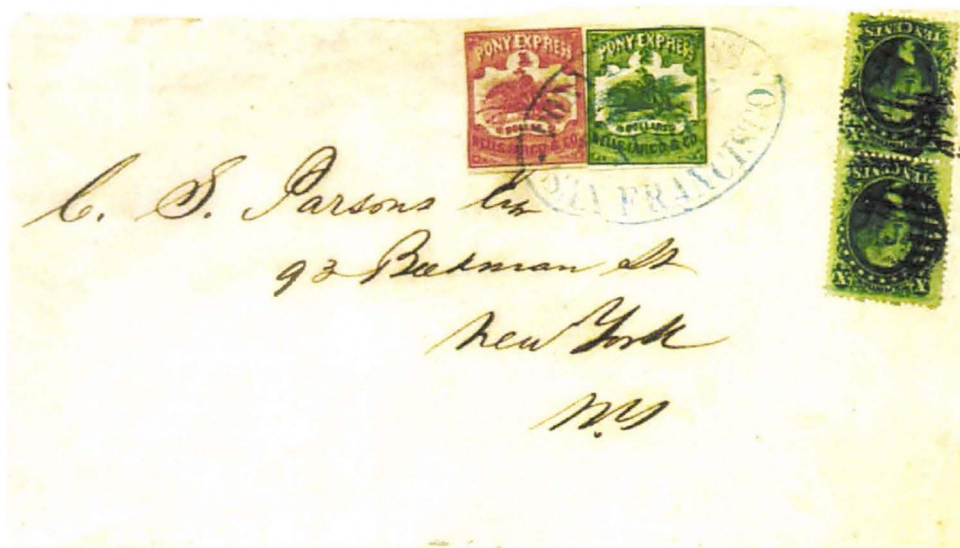 PONY EXPRESS
DOLLARS
WELLS, FARGO & CO.
PONY EXPRESS
DOLLARS
WELLS, FARGO & CO.
SAN FRANCISCO
TEN CENTS
X
TEN CENTS
X X
C. S. Parsons Esq
93 Beekman St
New York
N.Y